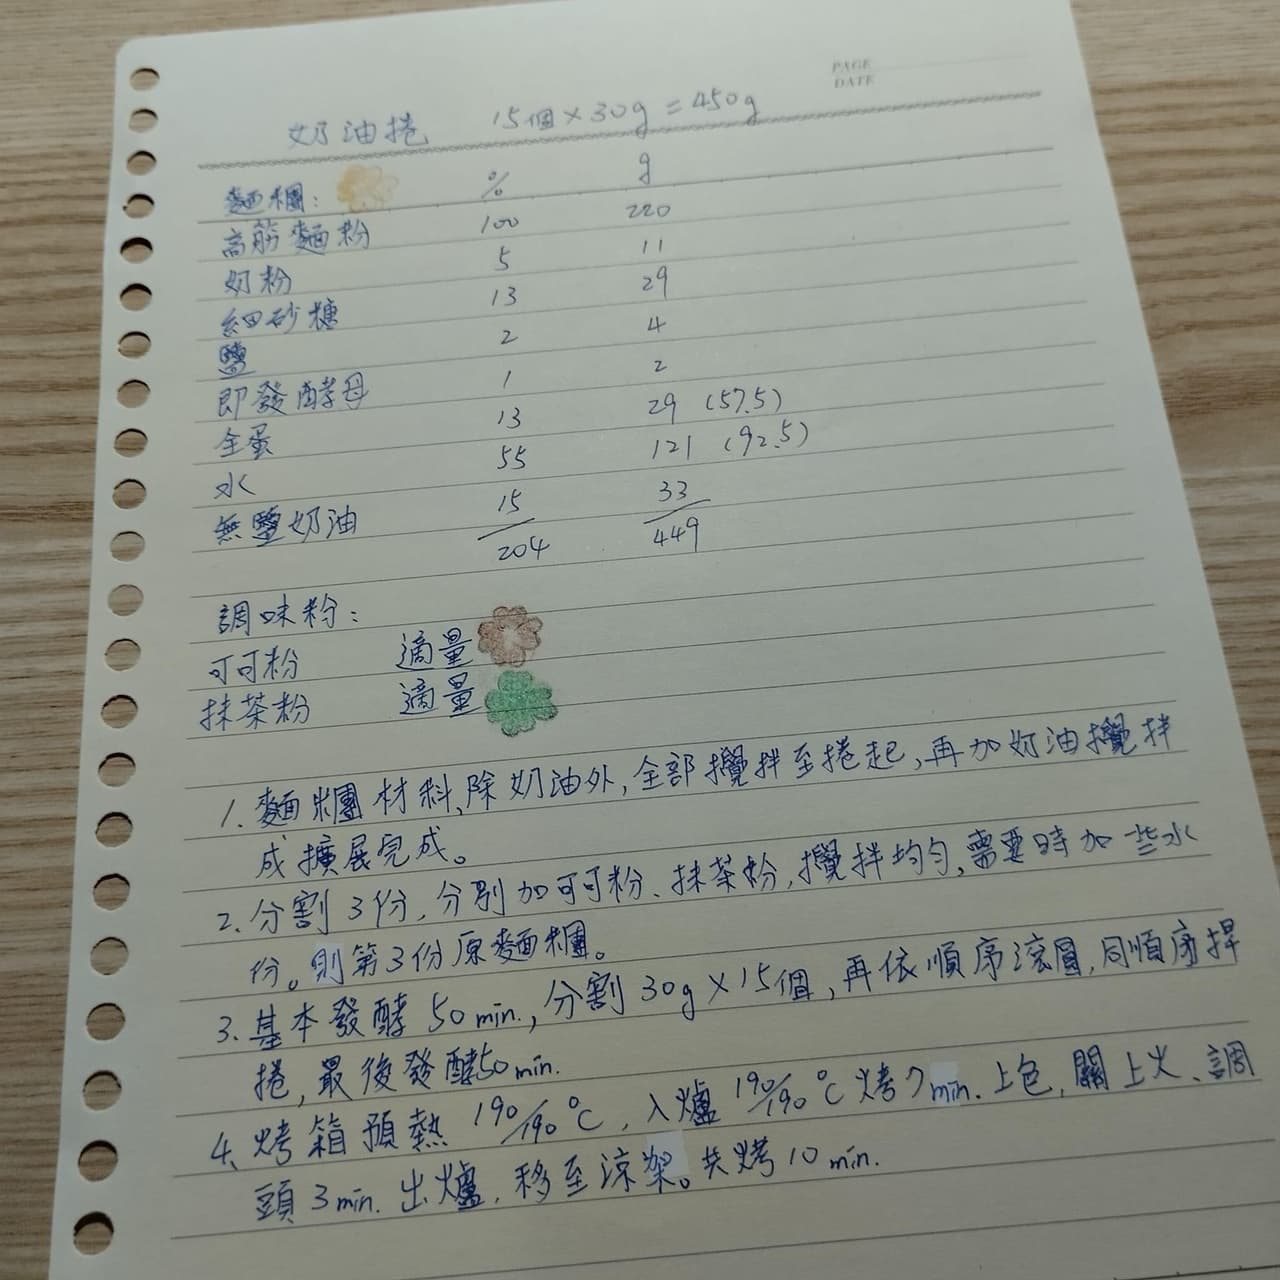 PAGE
DATE
奶油捲 15個×30g=450g
麵糰: % g
高筋麵粉 100 220
奶粉 5 11
細砂糖 13 29
鹽 2 4
即發酵母 1 2
全蛋 13 29 (57.5)
水 55 121 (92.5)
無鹽奶油 15 33
204 449
調味粉:
可可粉 適量
抹茶粉 適量
1. 麵糰材料,除奶油外,全部攪拌至捲起,再加奶油攪拌
成擴展完成。
2. 分割3份,分別加可可粉、抹茶粉,攪拌均勻,需要時加些水
份。則第3份原麵糰。
3. 基本發酵50min.,分割30g×15個,再依順序滾圓,同順序捍
捲,最後發酵50min.
4. 烤箱預熱190/190℃,入爐190/190℃烤7min.上色,關上火、調
頭3min.出爐,移至涼架。共烤10min.